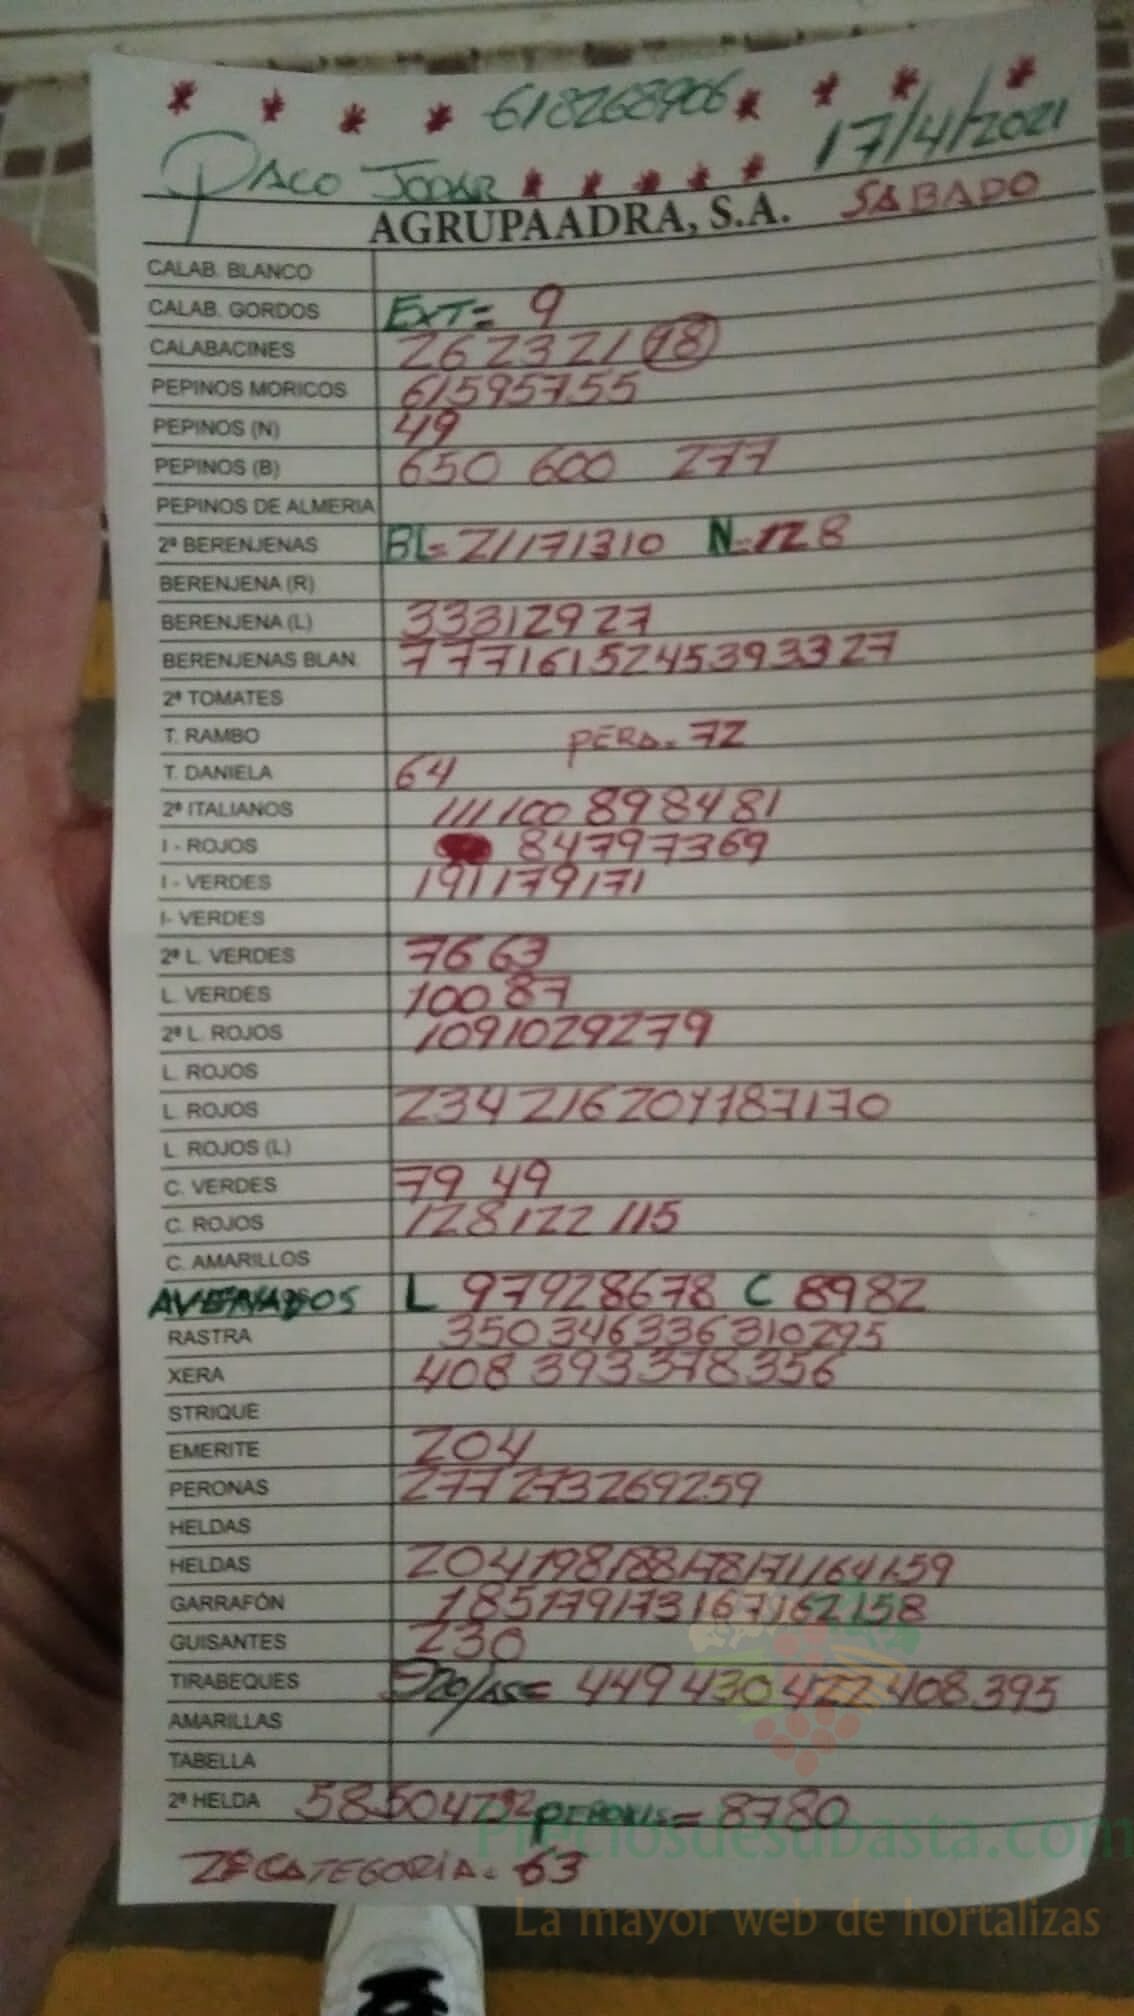 * * * * 618268906 * * * *
PACO JODAR * * * * * 17/4/2021
AGRUPAADRA, S.A. SABADO
CALAB. BLANCO
CALAB. GORDOS EXT= 9
CALABACINES 26 23 21 18
PEPINOS MORICOS 61595755
PEPINOS (N) 49
PEPINOS (B) 650 600 277
PEPINOS DE ALMERIA
2ª BERENJENAS BL= 21171310 N=128
BERENJENA (R)
BERENJENA (L) 33312927
BERENJENAS BLAN. 7771615245393327
2ª TOMATES
T. RAMBO PERA. 72
T. DANIELA 64
2ª ITALIANOS 111100 898481
I - ROJOS 84797369
I - VERDES 191179171
I- VERDES
2ª L. VERDES 76 63
L. VERDES 100 87
2ª L. ROJOS 1091029279
L. ROJOS
L. ROJOS 234 216 204187170
L. ROJOS (L)
C. VERDES 79 49
C. ROJOS 128122 115
C. AMARILLOS
AVENADOS L 97928678 C 8982
RASTRA 350346336310295
XERA 408 393378356
STRIQUE
EMERITE 204
PERONAS 277273269259
HELDAS
HELDAS 204198188178171164159
GARRAFÓN 185179173167162158
GUISANTES 230
TIRABEQUES 449 430 422 408.395
AMARILLAS
TABELLA
2ª HELDA 58504792 PERONAS= 8780
2ª CATEGORÍA. 63
Preciosdesubasta.com
La mayor web de hortalizas